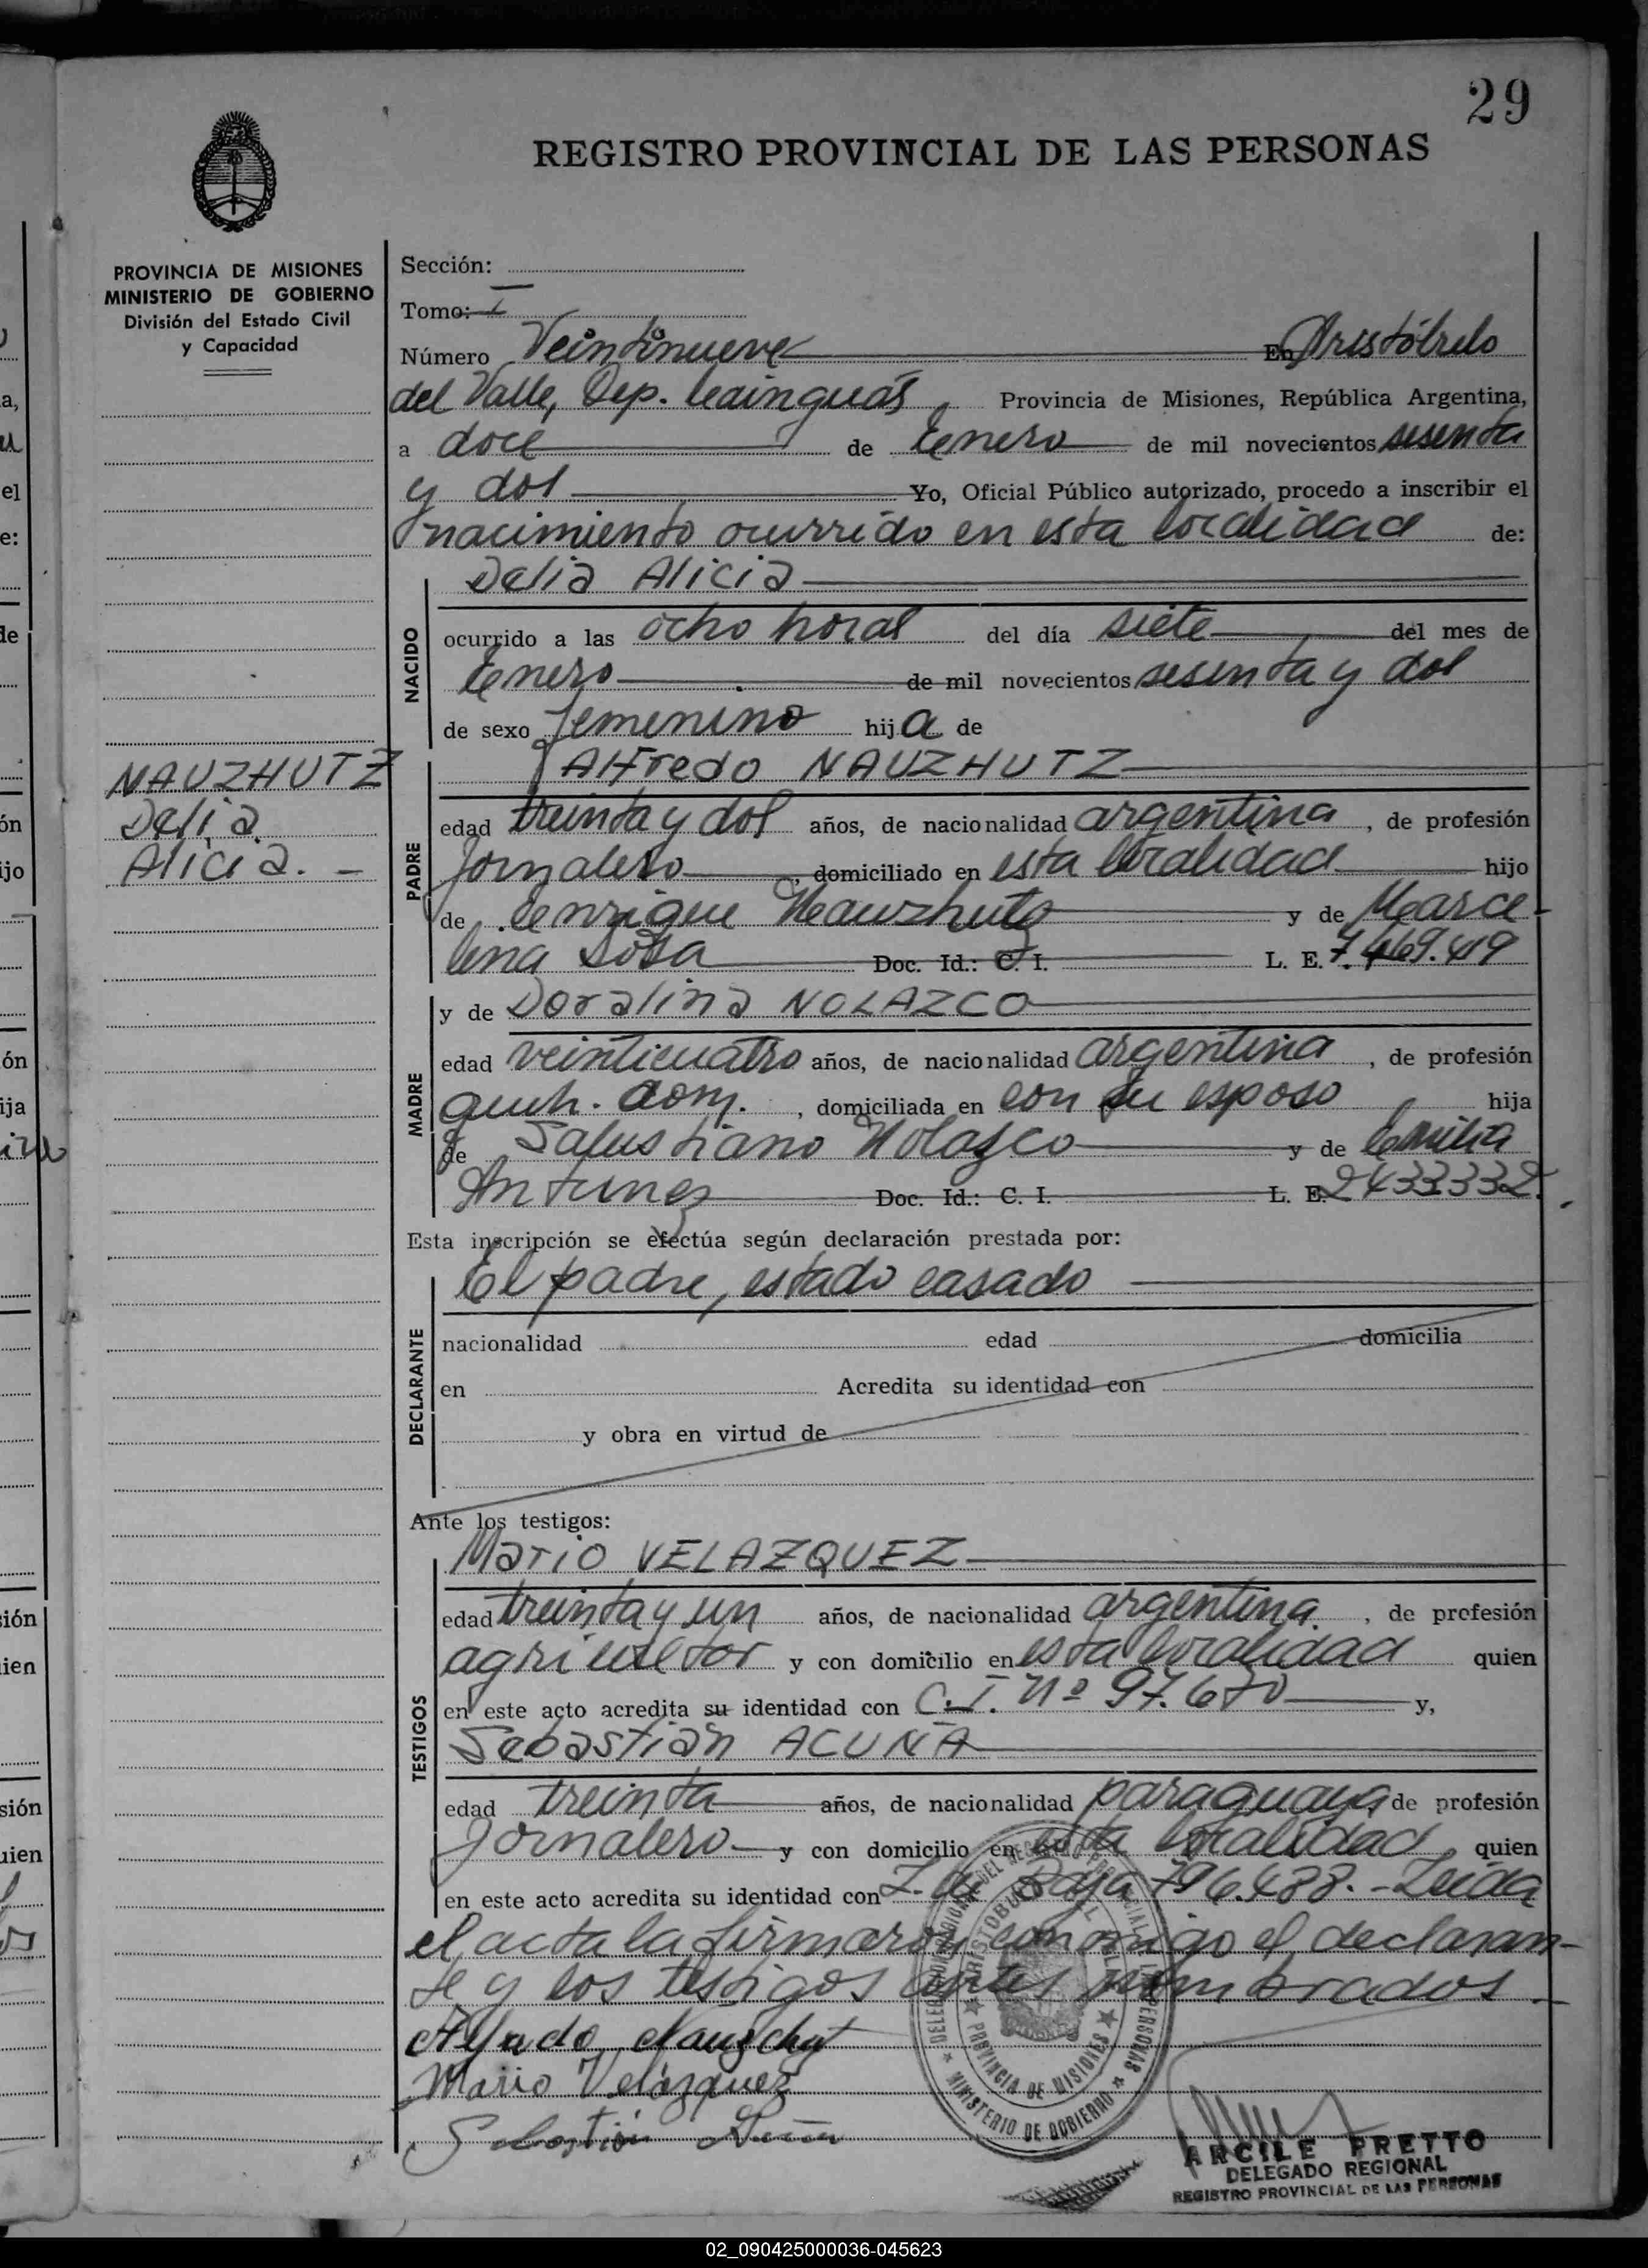 29
REGISTRO PROVINCIAL DE LAS PERSONAS
PROVINCIA DE MISIONES
MINISTERIO DE GOBIERNO
División del Estado Civil
y Capacidad
NAUZHUTZ
Delia
Alicia. -
Sección:
Tomo: I
Número Veintinueve En Aristóbulo
del Valle, Dep. Cainguás, Provincia de Misiones, República Argentina,
a doce de Enero de mil novecientos sesenta
y dos Yo, Oficial Público autorizado, procedo a inscribir el
nacimiento ocurrido en esta localidad de:
NACIDO
Delia Alicia
ocurrido a las ocho horas del día siete del mes de
Enero de mil novecientos sesenta y dos
de sexo femenino hija de
PADRE
Alfredo NAUZHUTZ
edad treinta y dos años, de nacionalidad argentina, de profesión
Jornalero, domiciliado en esta localidad hijo
de Enrique Nauzhutz y de Marce
lina Sosa Doc. Id.: C. I. L. E. 7.469.419
MADRE
y de Doralina NOLAZCO
edad veinticuatro años, de nacionalidad argentina, de profesión
queh. dom., domiciliada en con su esposo hija
de Salustiano Nolazco y de Emilia
Antunez Doc. Id.: C. I. L. E. 2433332.
Esta inscripción se efectúa según declaración prestada por:
DECLARANTE
El padre, estado casado
nacionalidad edad domicilia
en Acredita su identidad con
y obra en virtud de
Ante los testigos:
TESTIGOS
Mario VELAZQUEZ
edad treinta y un años, de nacionalidad argentina, de profesión
agricultor y con domicilio en esta localidad quien
en este acto acredita su identidad con C.I. Nº 97.670 y,
Sebastián ACUÑA
edad treinta años, de nacionalidad paraguaya, de profesión
Jornalero y con domicilio en esta localidad quien
en este acto acredita su identidad con L. de Baja 796.488. - Leída
el acta la firmaron conmigo el declaran-
te y los testigos antes nombrados.
Mario Velázquez
Sebastián Acuña
MINISTERIO DE GOBIERNO
PROVINCIA DE MISIONES
ARCILE PRETTO
DELEGADO REGIONAL
REGISTRO PROVINCIAL DE LAS PERSONAS
02_090425000036-045623